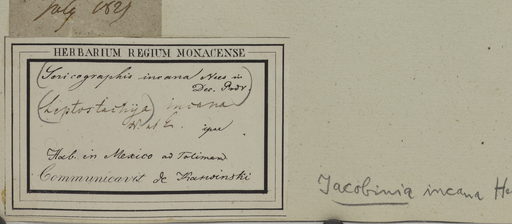 July 1827
HERBARIUM REGIUM MONACENSE
(Sericographis incana Nees in
Dec. Prodr.)
(Leptostachya) incana
N. ab E. ipse
Hab. in Mexico ad Toliman
Communicavit de Karwinski
Jacobinia incana He